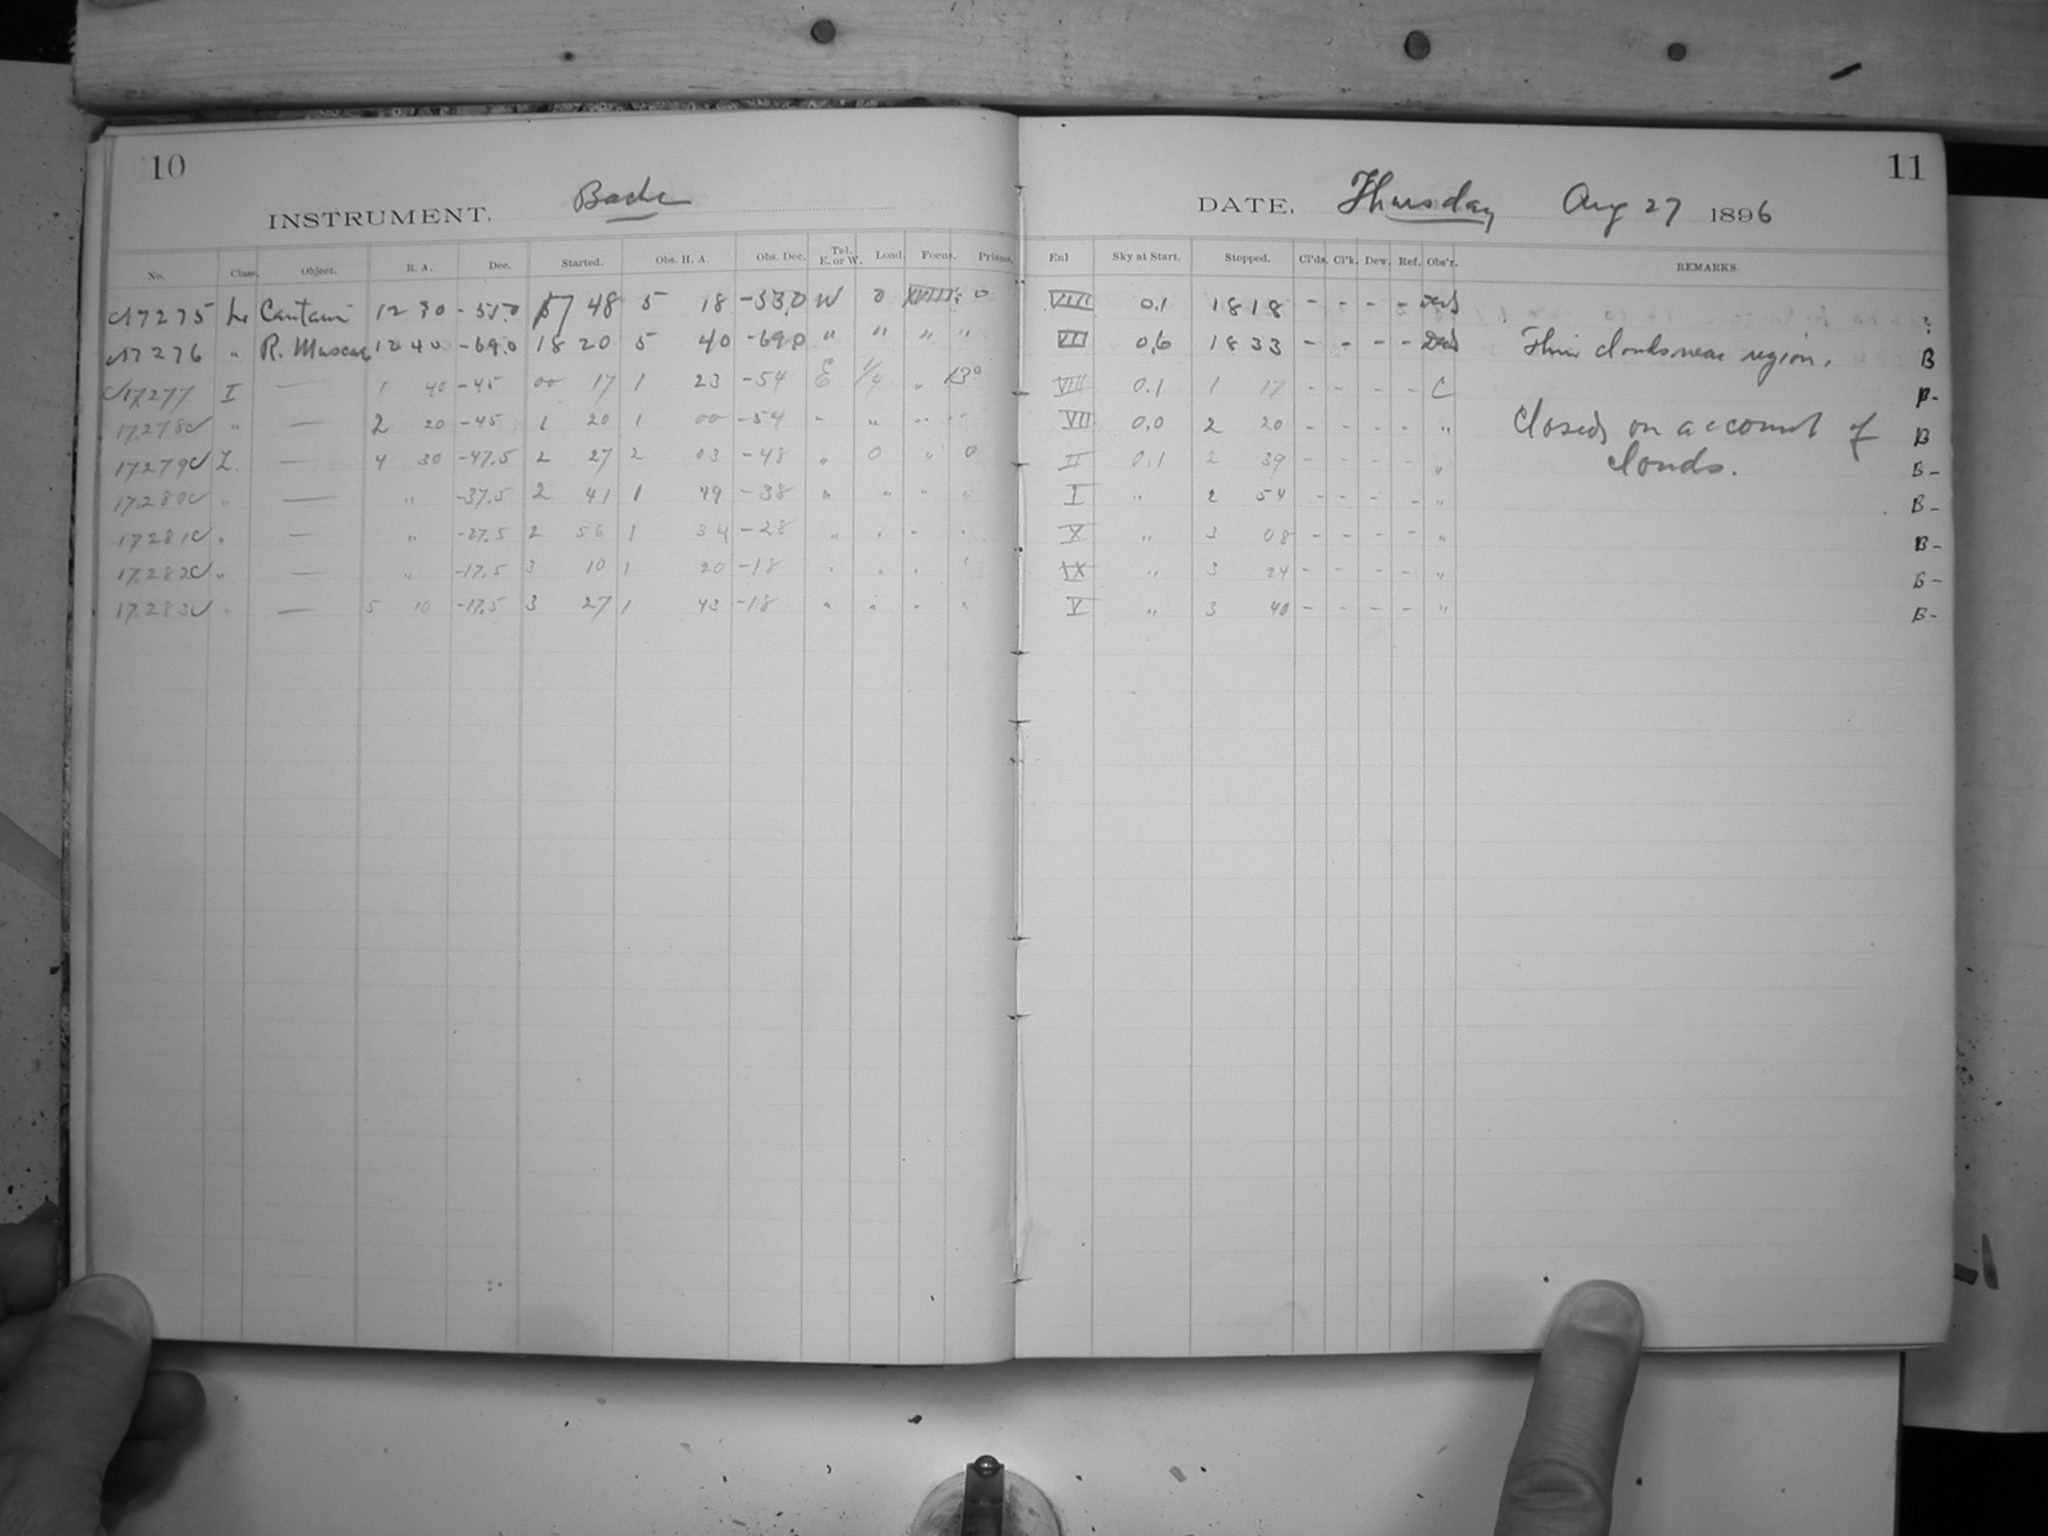 10
INSTRUMENT, Bache
No. Class. Object. R. A. Dec. Started. Obs. H. A. Obs. Dec. Tel. E. or W. Load. Focus. Prisms.
17275 L Centauri 12 30 17 48 5 18 -53.0 W 0 0
17276 " R. Muscae 12 40 -69.0 18 20 5 40 -69.0 " " " "
17277 I — 1 40 -45 00 17 1 23 -54 E 1/4 " 13°
17278 " — 2 20 -45 1 20 1 00 -54 " " " "
17279 L. — 4 30 -47.5 2 27 2 03 -48 " 0 " 0
17280 " — " -37.5 2 41 1 49 -38 " " " "
17281 " — " -27.5 2 56 1 34 -28 " " " "
17282 " — " -17.5 3 10 1 20 -18 " " " "
17283 " — 5 10 -17.5 3 27 1 43 -18 " " " "
11
DATE, Thursday Aug 27 1896
Enl Sky at Start. Stopped. Cl'ds. Cl'k. Dew. Ref. Obs'r. REMARKS.
VIII 0.1 18 18 - - - - ?
VII 0.6 18 33 - - - - Thin clouds near region. B
VIII 0.1 1 17 - - - - C B-
VII 0.0 2 20 - - - - " Closed on account of B
II 0.1 2 39 - - - - " clouds. B-
I " 2 54 - - - - " B-
X " 3 08 - - - - " B-
IX " 3 24 - - - - " B-
V " 3 40 - - - - " B-